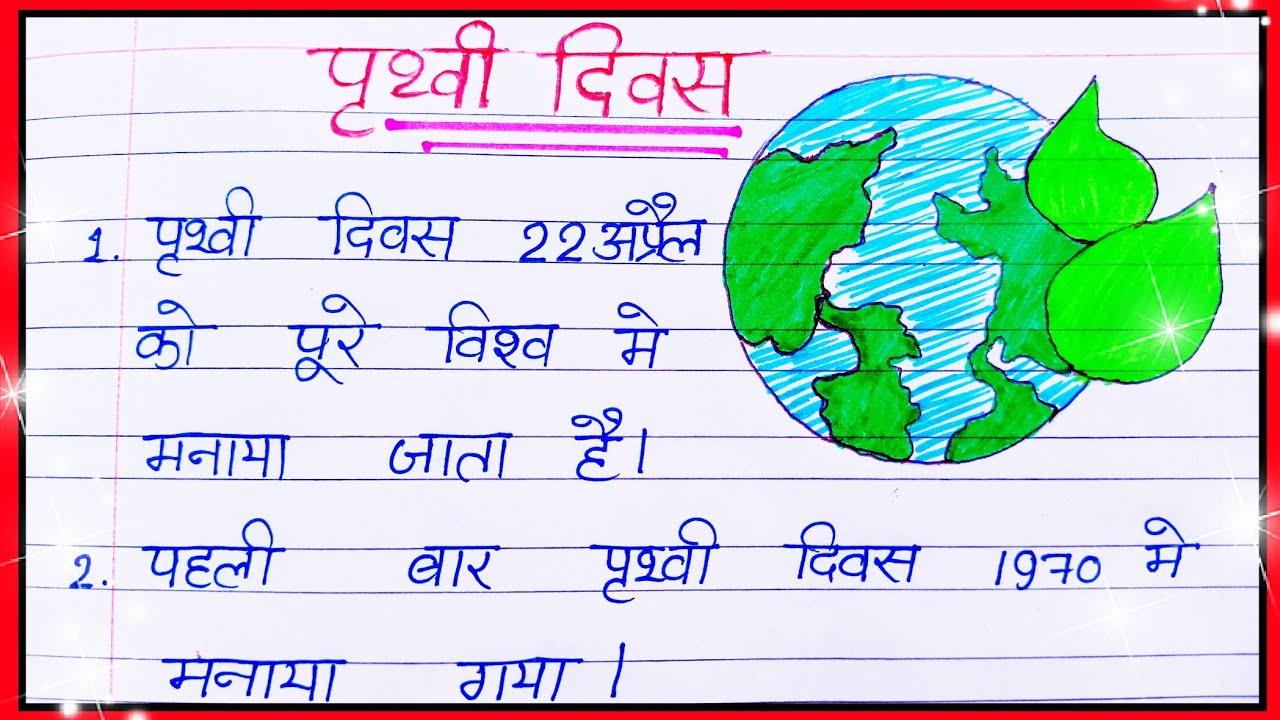 पृथ्वी दिवस
1. पृथ्वी दिवस 22 अप्रैल
को पूरे विश्व मे
मनाया जाता है।
2. पहली बार पृथ्वी दिवस 1970 मे
मनाया गया।